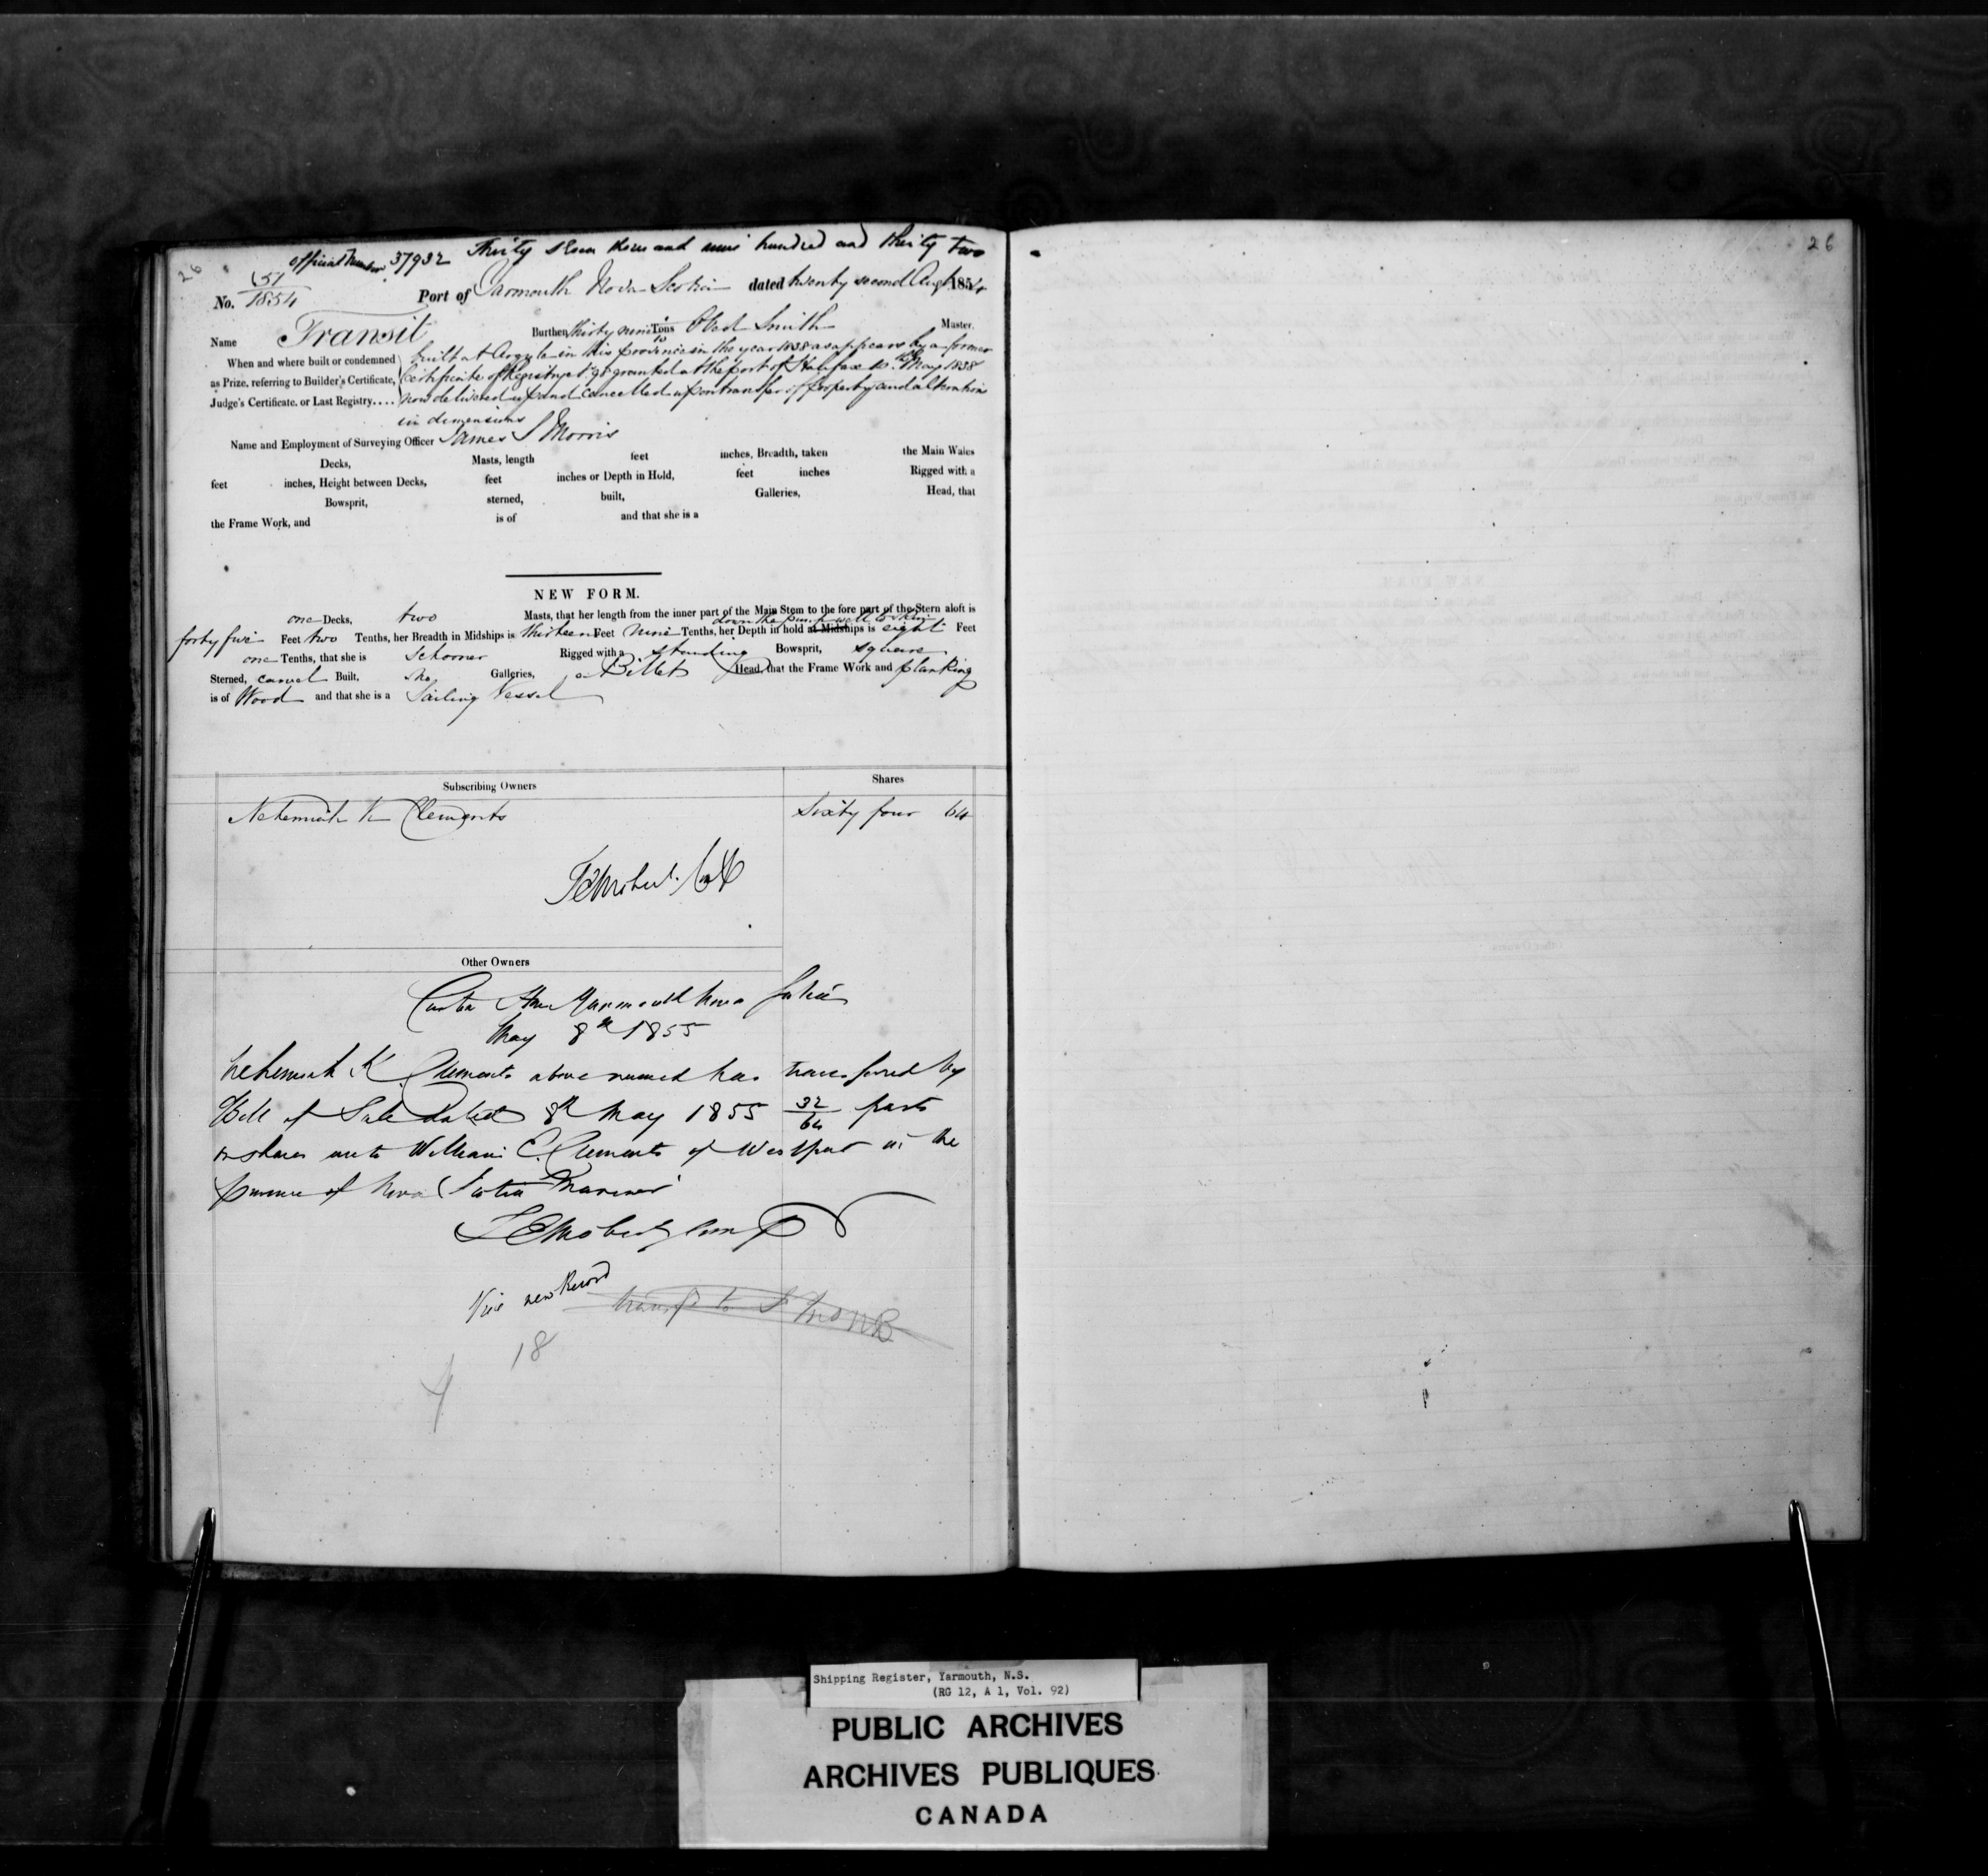 26
Official Number 37932 Thirty seven thousand nine hundred and thirty two
No. 51/1854 Port of Yarmouth Nova Scotia dated twenty second Augt 1854
Name Transit Burthen thirty nine Tons Obed Smith Master.
When and where built or condemned built at Argyle in this province in the year 1838 as appears by a former
as Prize, referring to Builder's Certificate, Certificate of Registry granted at the port of Halifax May 1838
Judge's Certificate. or Last Registry.... now delivered up and cancelled upon transfer of property and alteration
in dimensions
Name and Employment of Surveying Officer James S Morris
Decks, Masts, length feet inches, Breadth, taken the Main Wales
feet inches, Height between Decks, feet inches or Depth in Hold, feet inches Rigged with a
Bowsprit, sterned, built, Galleries, Head, that
the Frame Work, and is of and that she is a
NEW FORM.
one Decks, two Masts, that her length from the inner part of the Main Stem to the fore part of the Stern aloft is
down the pump well to skin
forty five Feet two Tenths, her Breadth in Midships is thirteen Feet nine Tenths, her Depth in hold at Midships is eight Feet
one Tenths, that she is Schooner Rigged with a standing Bowsprit, square
Sterned, carvel Built, no Galleries, a Billet Head, that the Frame Work and planking
is of Wood and that she is a Sailing Vessel
Subscribing Owners Shares
Nehemiah K Clements Sixty four 64
Other Owners
Custom House Yarmouth Nova Scotia
May 8th 1855
Nehemiah K Clements above named has transferred by
Bill of Sale dated 8th May 1855 32/64 parts
or shares unto William E. Clements of Westport in the
province of Nova Scotia Mariner
Vide new Record
18
4
26
Shipping Register, Yarmouth, N.S.
(RG 12, A 1, Vol. 92)
PUBLIC ARCHIVES
ARCHIVES PUBLIQUES
CANADA